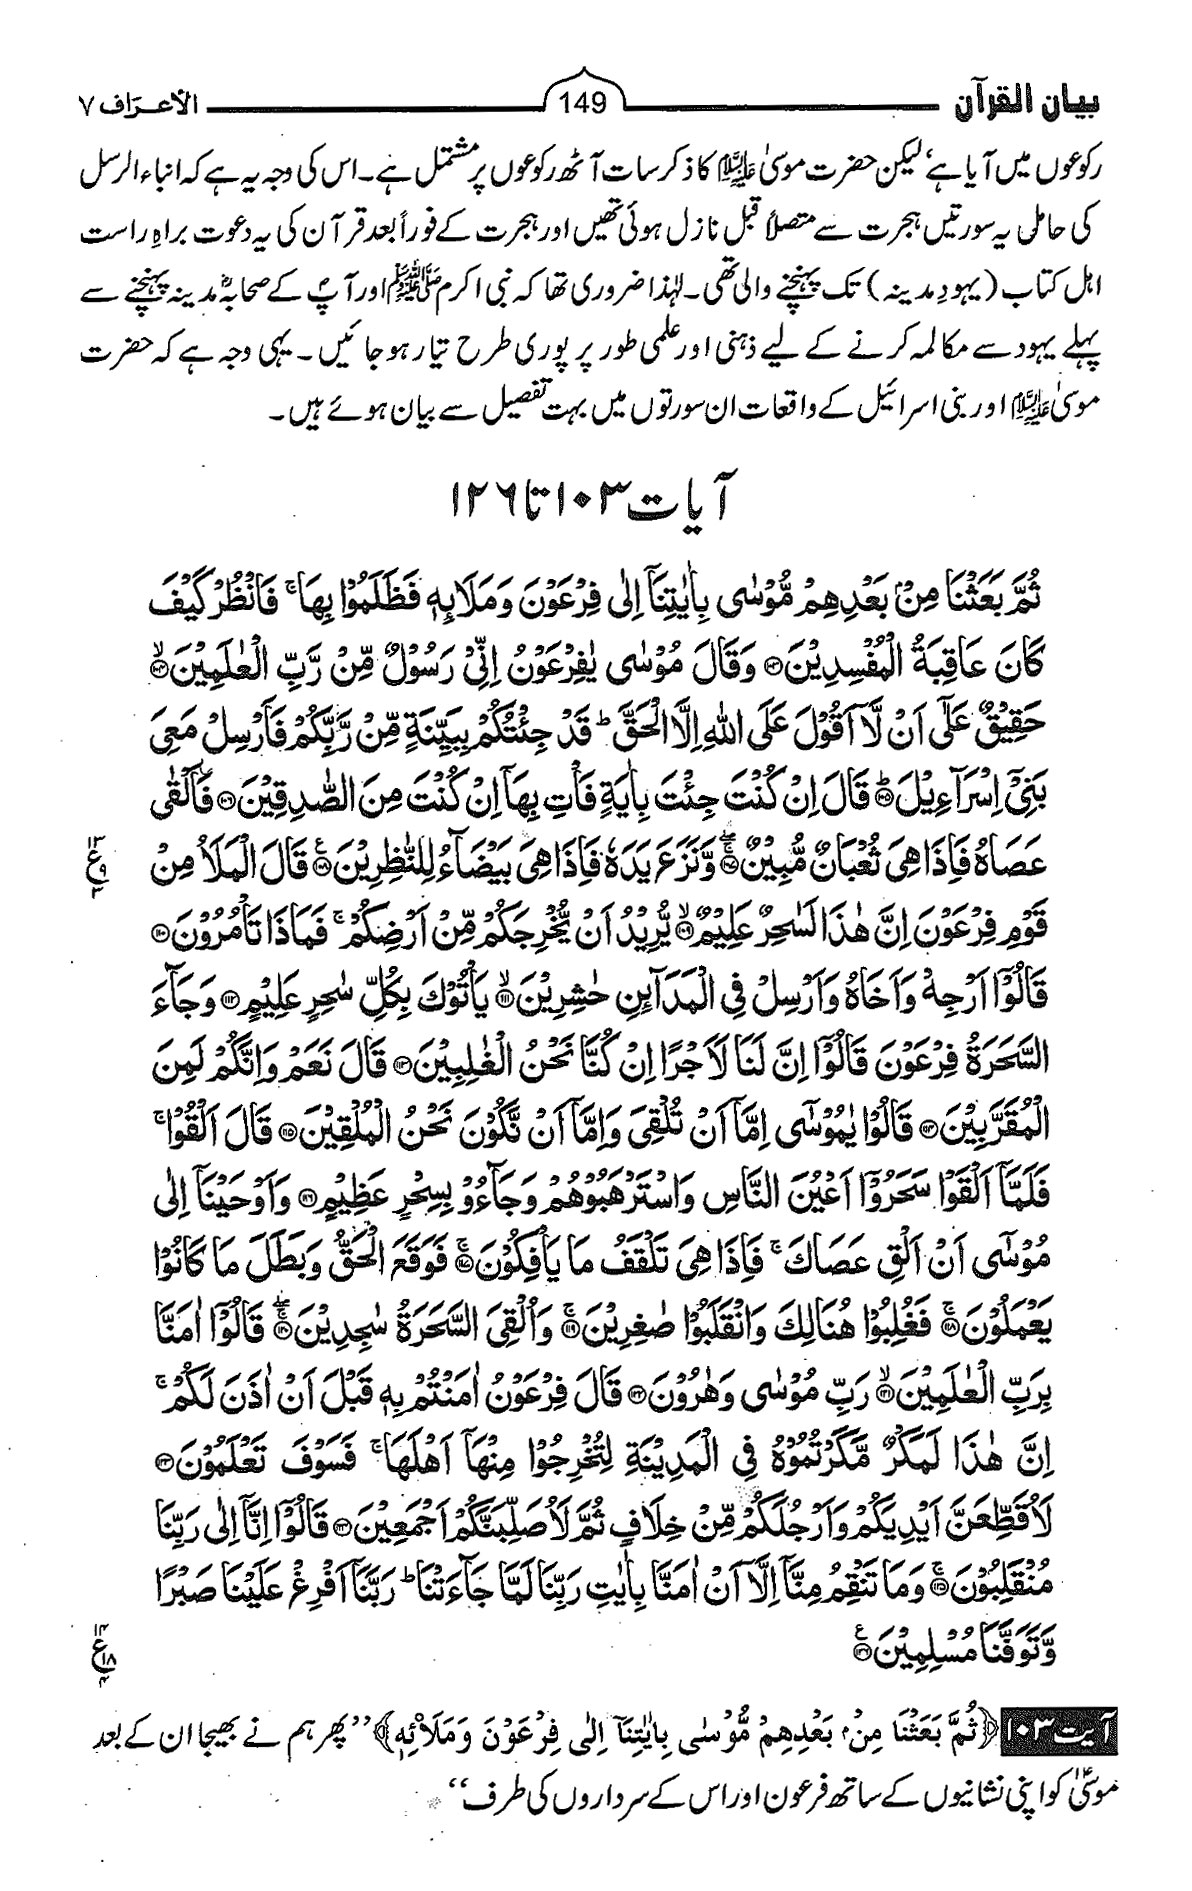 بیان القرآن 149 الاعراف ۷
رکوعوں میں آیا ہے‘ لیکن حضرت موسیٰ علیہ السلام کا ذکر سات آٹھ رکوعوں پر مشتمل ہے۔ اس کی وجہ یہ ہے کہ انباء الرسل
کی حامل یہ سورتیں ہجرت سے متصلاً قبل نازل ہوئی تھیں اور ہجرت کے فوراً بعد قرآن کی یہ دعوت براہِ راست
اہل کتاب (یہودِ مدینہ) تک پہنچنے والی تھی۔ لہٰذا ضروری تھا کہ نبی اکرم ﷺ اور آپؐ کے صحابہؓ مدینہ پہنچنے سے
پہلے یہود سے مکالمہ کرنے کے لیے ذہنی اور علمی طور پر پوری طرح تیار ہو جائیں۔ یہی وجہ ہے کہ حضرت
موسیٰ علیہ السلام اور بنی اسرائیل کے واقعات ان سورتوں میں بہت تفصیل سے بیان ہوئے ہیں۔
آیات ۱۰۳ تا ۱۲۶
ثُمَّ بَعَثْنَا مِنْۢ بَعْدِهِمْ مُّوْسٰى بِاٰيٰتِنَاۤ اِلٰى فِرْعَوْنَ وَمَلَا۟ىِٕهٖ فَظَلَمُوْا بِهَا ۚ فَانْظُرْ كَيْفَ
كَانَ عَاقِبَةُ الْمُفْسِدِيْنَ ۝۱۰۳ وَقَالَ مُوْسٰى يٰفِرْعَوْنُ اِنِّىْ رَسُوْلٌ مِّنْ رَّبِّ الْعٰلَمِيْنَ ۝ۙ
حَقِيْقٌ عَلٰۤى اَنْ لَّاۤ اَقُوْلَ عَلَى اللّٰهِ اِلَّا الْحَقَّ ؕ قَدْ جِئْتُكُمْ بِبَيِّنَةٍ مِّنْ رَّبِّكُمْ فَاَرْسِلْ مَعِىَ
بَنِىْۤ اِسْرَآءِيْلَ ۝۱۰۵ؕ قَالَ اِنْ كُنْتَ جِئْتَ بِاٰيَةٍ فَاْتِ بِهَاۤ اِنْ كُنْتَ مِنَ الصّٰدِقِيْنَ ۝۱۰۶ فَاَلْقٰى
عَصَاهُ فَاِذَا هِىَ ثُعْبَانٌ مُّبِيْنٌ ۝۱۰۷ۚۖ وَّنَزَعَ يَدَهٗ فَاِذَا هِىَ بَيْضَآءُ لِلنّٰظِرِيْنَ ۝۱۰۸ۧ قَالَ الْمَلَاُ مِنْ
قَوْمِ فِرْعَوْنَ اِنَّ هٰذَا لَسٰحِرٌ عَلِيْمٌ ۝۱۰۹ۙ يُّرِيْدُ اَنْ يُّخْرِجَكُمْ مِّنْ اَرْضِكُمْ ۚ فَمَاذَا تَاْمُرُوْنَ ۝۱۱۰
قَالُوْۤا اَرْجِهْ وَاَخَاهُ وَاَرْسِلْ فِى الْمَدَآئِنِ حٰشِرِيْنَ ۝۱۱۱ۙ يَاْتُوْكَ بِكُلِّ سٰحِرٍ عَلِيْمٍ ۝۱۱۲ وَجَآءَ
السَّحَرَةُ فِرْعَوْنَ قَالُوْۤا اِنَّ لَنَا لَاَجْرًا اِنْ كُنَّا نَحْنُ الْغٰلِبِيْنَ ۝۱۱۳ قَالَ نَعَمْ وَاِنَّكُمْ لَمِنَ
الْمُقَرَّبِيْنَ ۝۱۱۴ قَالُوْا يٰمُوْسٰۤى اِمَّاۤ اَنْ تُلْقِىَ وَاِمَّاۤ اَنْ نَّكُوْنَ نَحْنُ الْمُلْقِيْنَ ۝۱۱۵ قَالَ اَلْقُوْا ۚ
فَلَمَّاۤ اَلْقَوْا سَحَرُوْۤا اَعْيُنَ النَّاسِ وَاسْتَرْهَبُوْهُمْ وَجَآءُوْ بِسِحْرٍ عَظِيْمٍ ۝۱۱۶ وَاَوْحَيْنَاۤ اِلٰى
مُوْسٰۤى اَنْ اَلْقِ عَصَاكَ ۚ فَاِذَا هِىَ تَلْقَفُ مَا يَاْفِكُوْنَ ۝۱۱۷ۚ فَوَقَعَ الْحَقُّ وَبَطَلَ مَا كَانُوْا
يَعْمَلُوْنَ ۝۱۱۸ۚ فَغُلِبُوْا هُنَالِكَ وَانْقَلَبُوْا صٰغِرِيْنَ ۝۱۱۹ۚ وَاُلْقِىَ السَّحَرَةُ سٰجِدِيْنَ ۝۱۲۰ۚۖ قَالُوْۤا اٰمَنَّا
بِرَبِّ الْعٰلَمِيْنَ ۝۱۲۱ۙ رَبِّ مُوْسٰى وَهٰرُوْنَ ۝۱۲۲ قَالَ فِرْعَوْنُ اٰمَنْتُمْ بِهٖ قَبْلَ اَنْ اٰذَنَ لَكُمْ ۚ
اِنَّ هٰذَا لَمَكْرٌ مَّكَرْتُمُوْهُ فِى الْمَدِيْنَةِ لِتُخْرِجُوْا مِنْهَاۤ اَهْلَهَا ۚ فَسَوْفَ تَعْلَمُوْنَ ۝۱۲۳
لَاُقَطِّعَنَّ اَيْدِيَكُمْ وَاَرْجُلَكُمْ مِّنْ خِلَافٍ ثُمَّ لَاُصَلِّبَنَّكُمْ اَجْمَعِيْنَ ۝۱۲۴ قَالُوْۤا اِنَّاۤ اِلٰى رَبِّنَا
مُنْقَلِبُوْنَ ۝۱۲۵ۚ وَمَا تَنْقِمُ مِنَّاۤ اِلَّاۤ اَنْ اٰمَنَّا بِاٰيٰتِ رَبِّنَا لَمَّا جَآءَتْنَا ؕ رَبَّنَاۤ اَفْرِغْ عَلَيْنَا صَبْرًا
وَّتَوَفَّنَا مُسْلِمِيْنَ ۝۱۲۶ۧ
آیت ۱۰۳ ﴿ثُمَّ بَعَثْنَا مِنْۢ بَعْدِهِمْ مُّوْسٰى بِاٰيٰتِنَاۤ اِلٰى فِرْعَوْنَ وَمَلَا۟ئِهٖ﴾ ’’پھر ہم نے بھیجا ان کے بعد
موسیٰؑ کو اپنی نشانیوں کے ساتھ فرعون اور اس کے سرداروں کی طرف‘‘